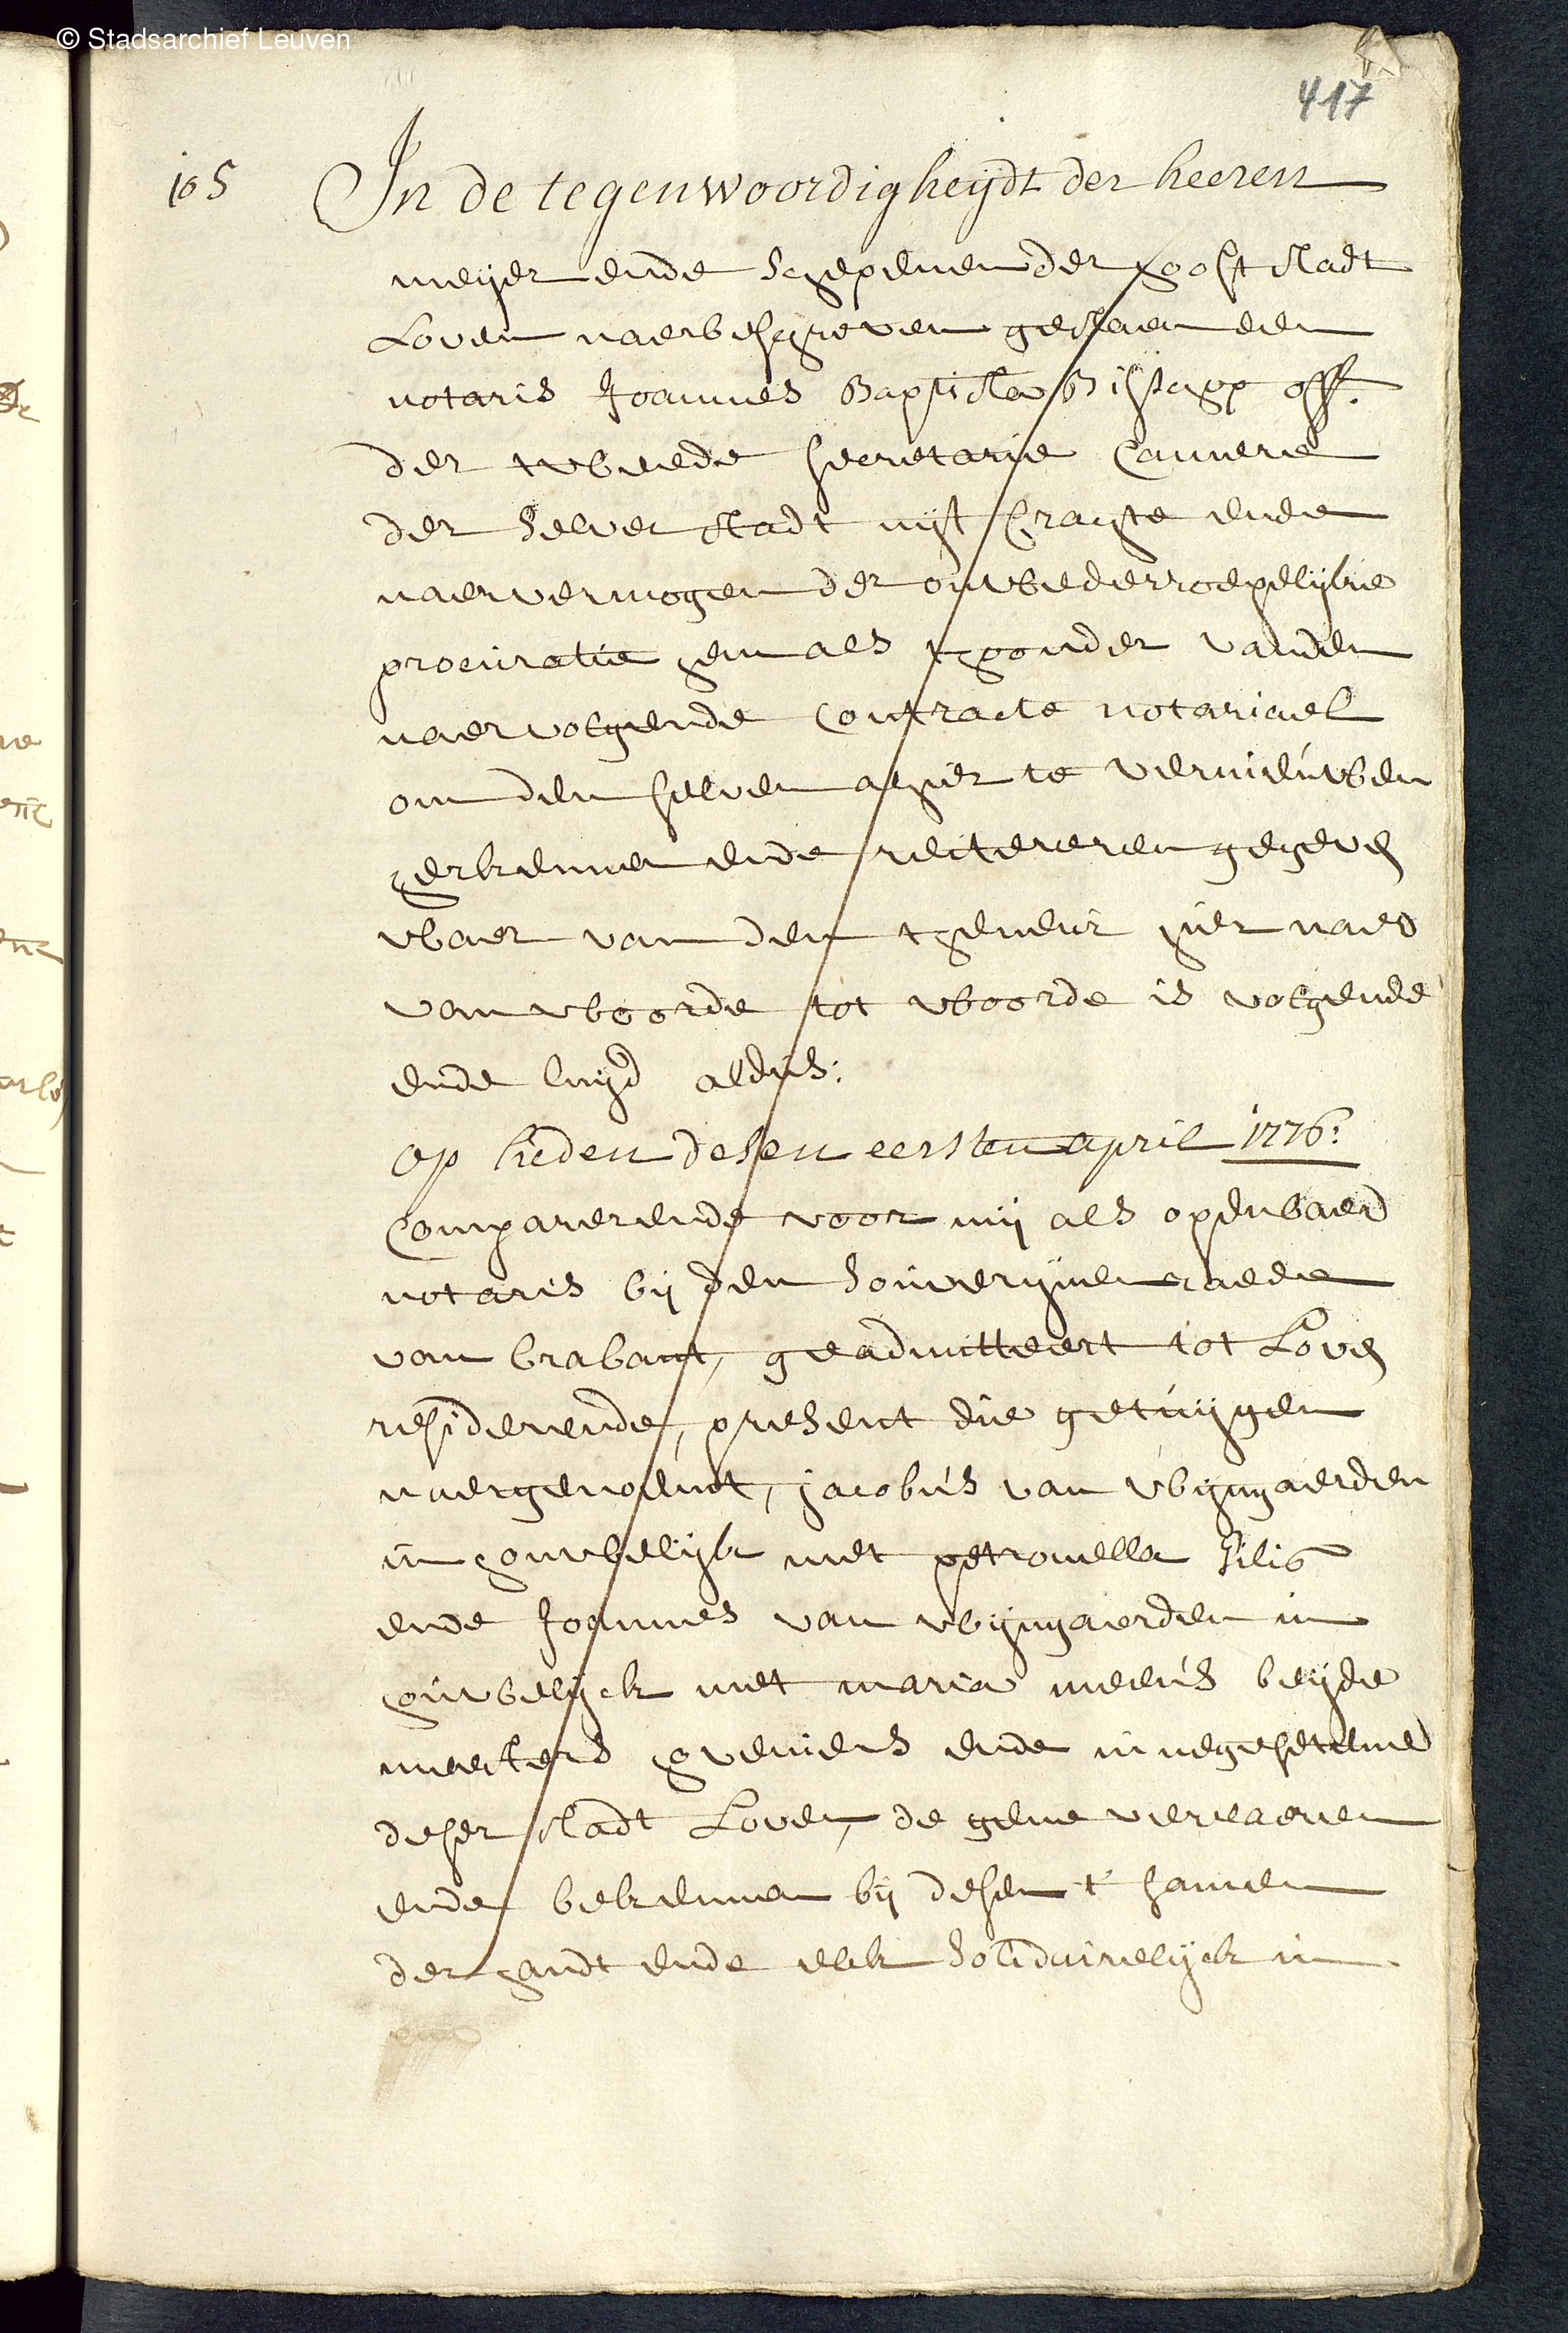 © Stadsarchief Leuven
417
105
In de tegenwoordigheijdt der heeren
meijer ende schepenen der hooftstadt
Loven naerbeschreven gestaen den
notaris Joannes Baptista Bisschop off.
der tweede secretarije Camere
der selver stadt uijt Crachte ende
naervermogen der onwederroepelijke
procuratie hem als thoonder vanden
naervolgende Contracte notariael
om den selven alhier te vernieuwen
herkennen ende reitereren gegeven
waer van den theneur hier naer
van woorde tot woorde is volgende
ende luijd aldus:
Op heden desen eersten april 1776:
Comparerende voor mij als openbaer
notaris bij den souverijnen raede
van brabant, geadmitteert tot Loven
residerende, present die getuijgen
naergenoemt, jacobus van wijngaerden
in houwelijk met petronella Silis
ende Joannes van wijngaerden in
houwelijck met maria meeus beijde
meesters hoveniers ende innegesetene
deser stadt Loven, de gene verclaeren
ende bekennen bij desen t' samen
der handt ende elck solidairelijck in